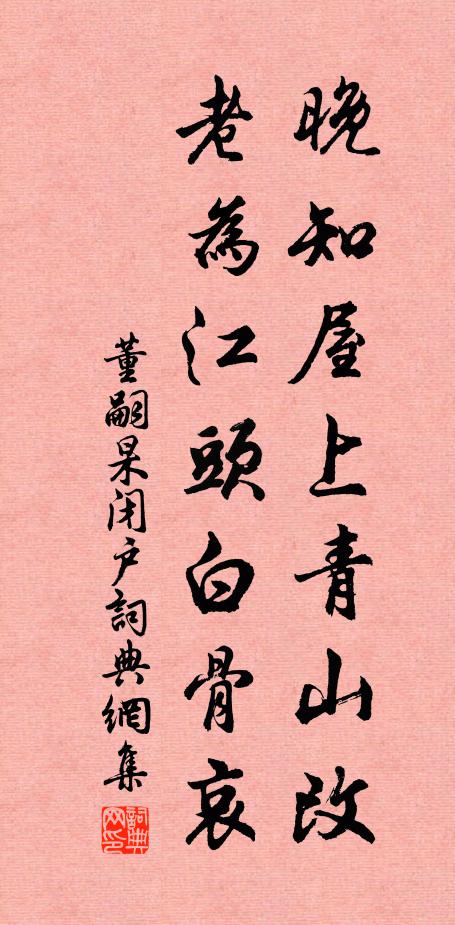 晚知屋上青山改
老為江頭白骨哀
董嗣杲閉户詞典網集
詞典网印